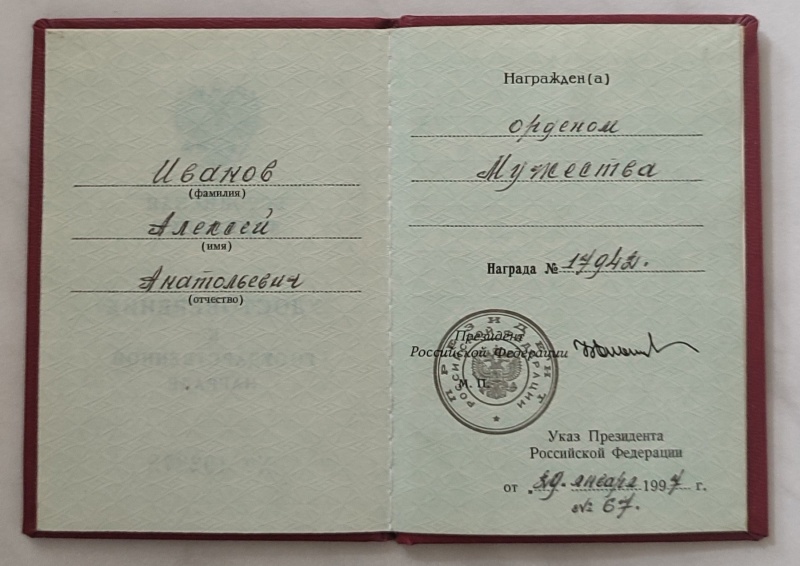 Иванов
(фамилия)
Алексей
(имя)
Анатольевич
(отчество)
Награжден(а)
орденом
Мужества
Награда №
Президент
Российской Федерации
М. П.
ПРЕЗИДЕНТ
РОССИЙСКОЙ ФЕДЕРАЦИИ
Указ Президента
Российской Федерации
от января 1997 г.
№ 67.